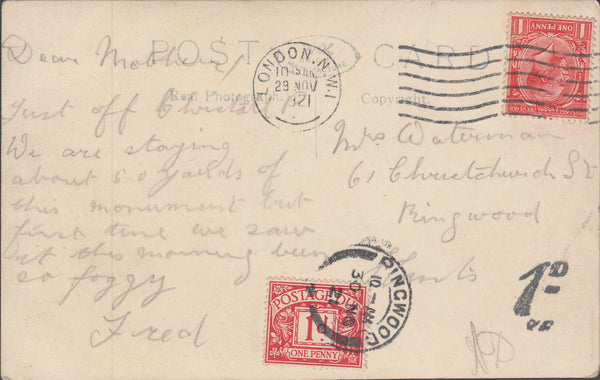 POST CARD
Real Photograph
Copyright.
LONDON. N.W.1
29 NOV
1921
ONE PENNY
Dear Mother
Just off
We are staying
about 50 yards of
this monument but
first time we saw
it this morning been
so foggy
Fred
Mrs Waterman
61 Christchurch St
Ringwood
Hants
POSTAGE DUE
1D
ONE PENNY
RINGWOOD
30 NO
21
1D